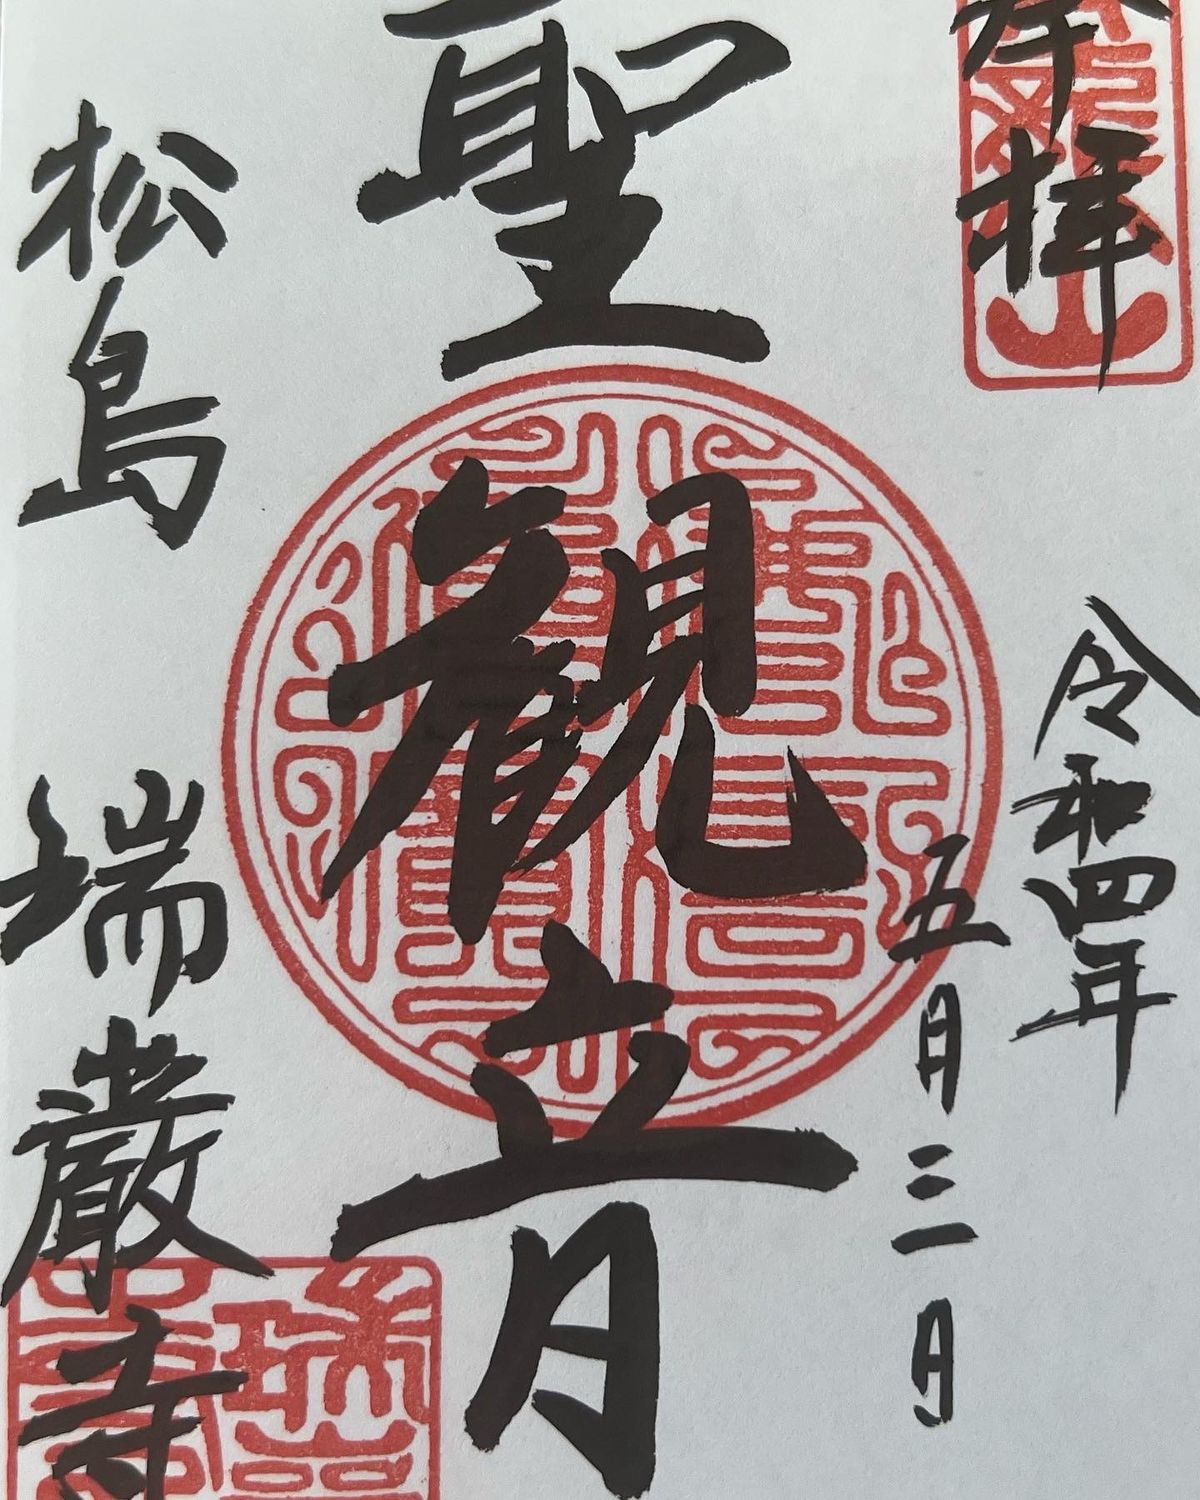 奉拝
令和四年
五月三日
聖観音
松島
瑞巌寺